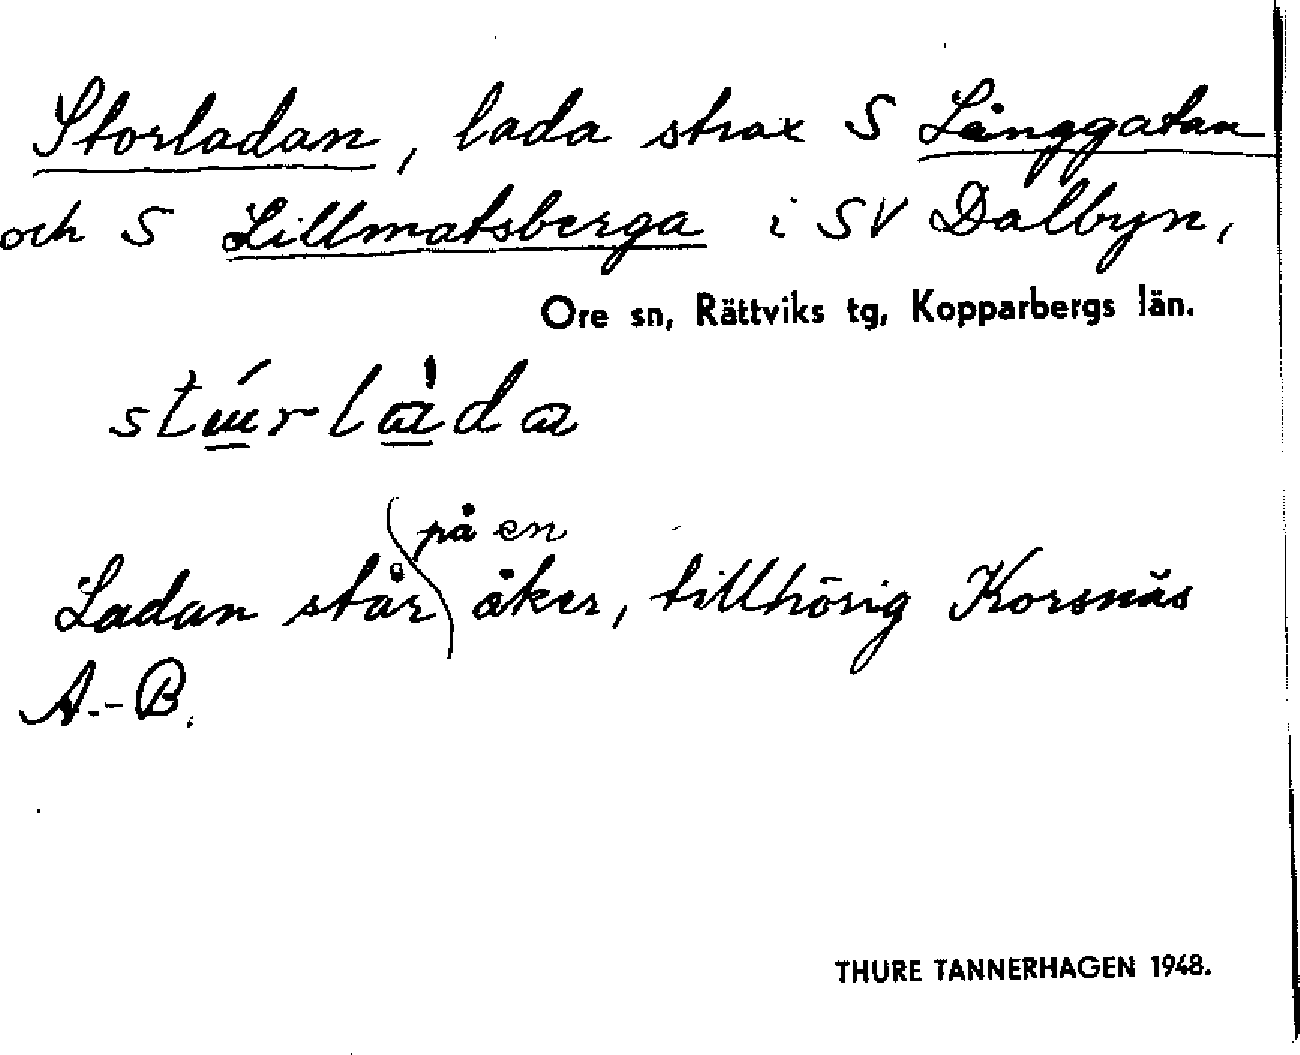 Storladan, lada strax S Långgatan
och S Lillmatsberga i SV Dalbyn,
Ore sn, Rättviks tg, Kopparbergs län.
på en
Ladan står åker, tillhörig Korsnäs
A.-B.
THURE TANNERHAGEN 1948.